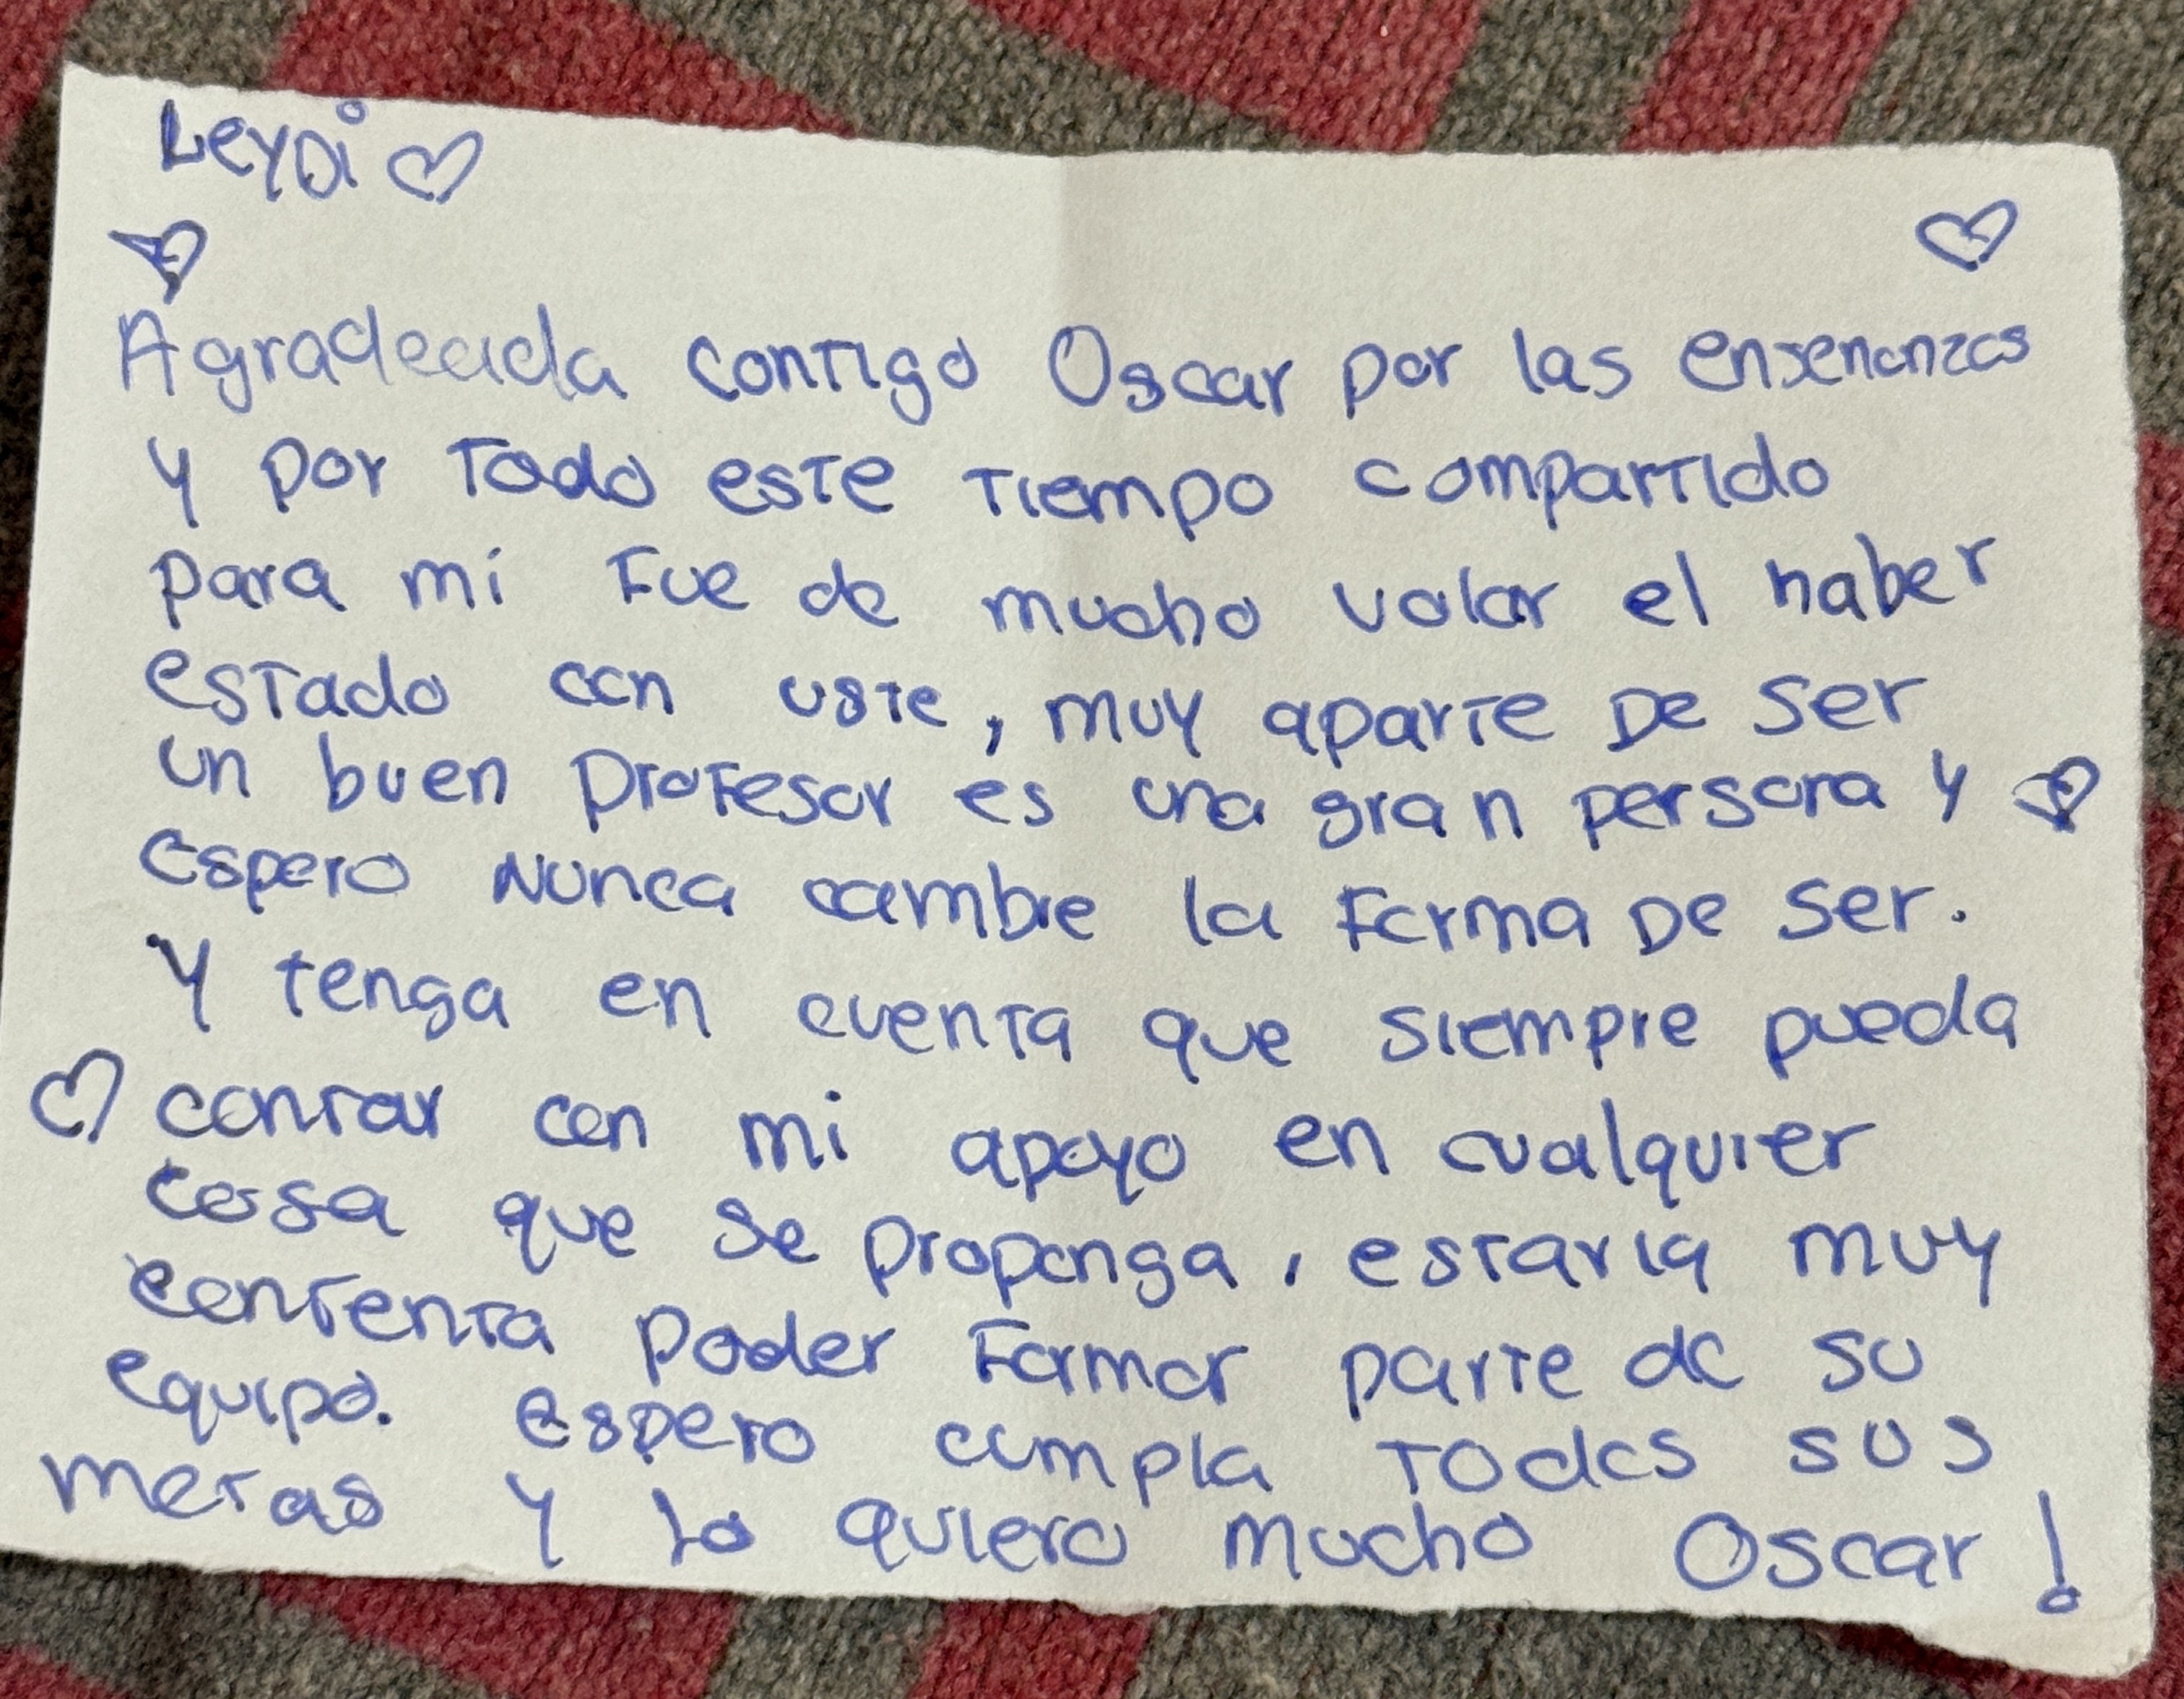 Leydi
Agradecida contigo Oscar por las ensenanzas
y por Todo este tiempo compartido
para mi Fue de mucho valor el haber
estado con uste, muy aparte De ser
un buen profesor es una gran persona y
espero Nunca cambie la Forma De ser.
Y tenga en cuenta que siempre pueda
contar con mi apoyo en cualquier
cosa que se proponga, estaria muy
contenta poder Formar parte de su
equipo. espero cumpla Todas sus
metas y lo quiero mucho Oscar!